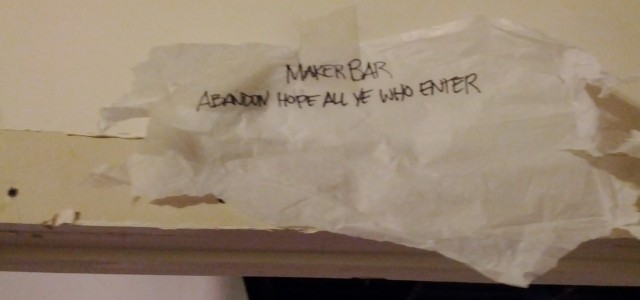 MAKER BAR
ABANDON HOPE ALL YE WHO ENTER